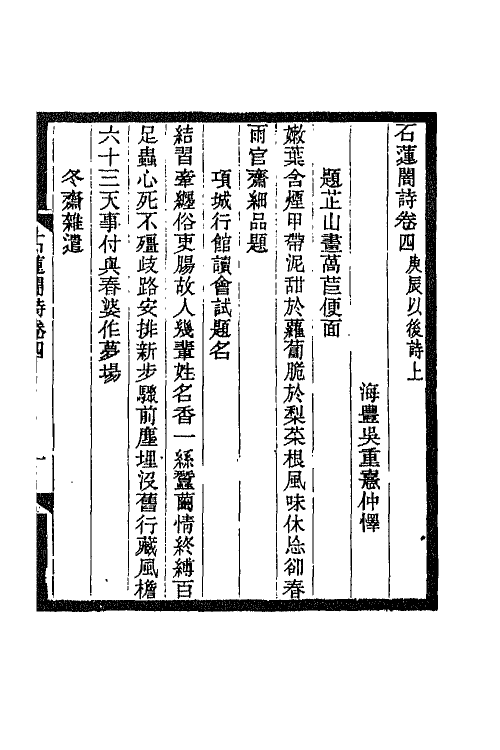 石蓮闇詩卷四庚辰以後詩上
海豐吳重憙仲懌
題芷山畫萵苣便面
嫩葉含煙甲帶泥甜於蘿蔔脆於梨菜根風味休忘卻春
雨官齋細品題
項城行館讀會試題名
結習牽纏俗吏腸故人幾輩姓名香一絲蠶繭情終縛百
足蟲心死不殭歧路安排新步驟前塵埋沒舊行藏風檐
六十三天事付與春婆作夢場
冬齋雜遣
石蓮闇詩卷四
一